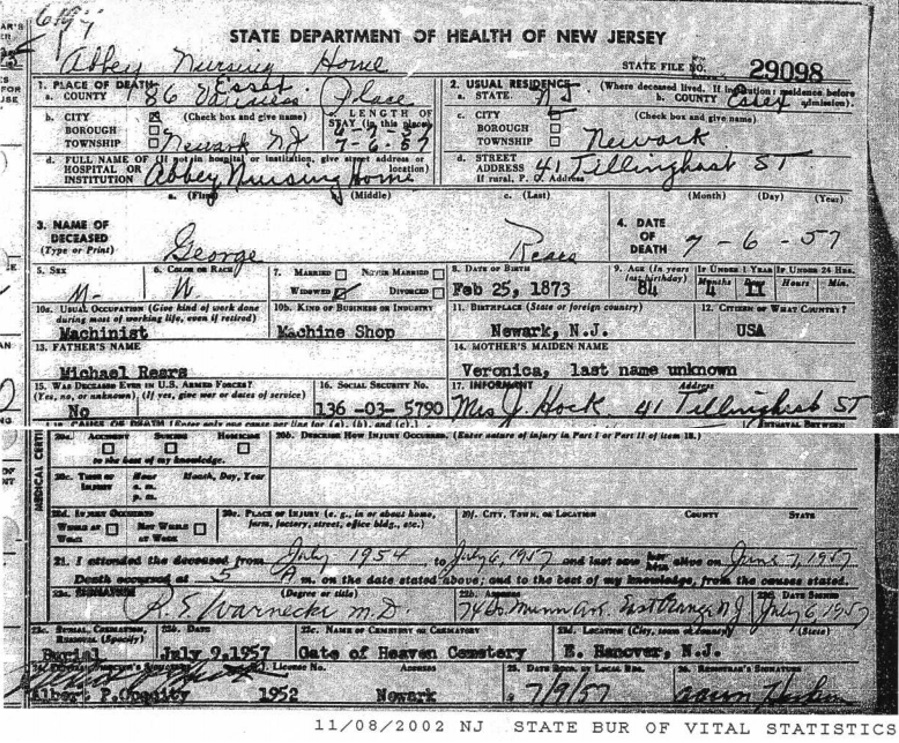 STATE DEPARTMENT OF HEALTH OF NEW JERSEY
Abbey Nursing Home
STATE FILE NO. 29098
1. PLACE OF DEATH 2. USUAL RESIDENCE (Where deceased lived. If institution: residence before admission).
a. COUNTY Essex a. STATE NJ b. COUNTY Essex
86 Place
b. CITY (Check box and give name) c. LENGTH OF STAY (in this place) c. CITY (Check box and give name)
BOROUGH BOROUGH
TOWNSHIP Newark NJ 7-6-57 TOWNSHIP Newark
d. FULL NAME OF HOSPITAL OR INSTITUTION (If not in hospital or institution, give street address or location) Abbey Nursing Home
d. STREET ADDRESS 41 Tillinghast ST
If rural, P. O. Address
a. (First) (Middle) c. (Last) (Month) (Day) (Year)
3. NAME OF DECEASED (Type or Print) George Rears 4. DATE OF DEATH 7-6-57
5. SEX 6. COLOR OR RACE 7. MARRIED NEVER MARRIED 8. DATE OF BIRTH 9. AGE (In years last birthday) IF UNDER 1 YEAR IF UNDER 24 HRS.
M- W WIDOWED DIVORCED Feb 25, 1873 84 Months 4 Hours Min.
10a. USUAL OCCUPATION (Give kind of work done during most of working life, even if retired) 10b. KIND OF BUSINESS OR INDUSTRY 11. BIRTHPLACE (State or foreign country) 12. CITIZEN OF WHAT COUNTRY?
Machinist Machine Shop Newark, N.J. USA
13. FATHER'S NAME 14. MOTHER'S MAIDEN NAME
Michael Rears Veronica, last name unknown
15. WAS DECEASED EVER IN U.S. ARMED FORCES? 16. SOCIAL SECURITY NO. 17. INFORMANT Address
(Yes, no, or unknown) (If yes, give war or dates of service)
No 136-03-5790 Mrs J. Hock 41 Tillinghast ST
MEDICAL CERTI
20a. ACCIDENT SUICIDE HOMICIDE 20b. DESCRIBE HOW INJURY OCCURRED. (Enter nature of injury in Part I or Part II of item 18.)
to the best of my knowledge.
20c. TIME OF INJURY Hour a. m. p. m. Month, Day, Year
20d. INJURY OCCURRED 20e. PLACE OF INJURY (e. g., in or about home, farm, factory, street, office bldg., etc.) 20f. CITY, TOWN, OR LOCATION COUNTY STATE
WHILE AT WORK NOT WHILE AT WORK
21. I attended the deceased from July 1954, to July 6, 1957 and last saw her him alive on June 7, 1957
Death occurred at 5 A m. on the date stated above; and to the best of my knowledge, from the causes stated.
22a. SIGNATURE (Degree or title) 22b. ADDRESS 22c. DATE SIGNED
R. E. Warnecke M.D. 74 So Munn Ave. East Orange NJ July 6, 1957
23a. BURIAL, CREMATION REMOVAL (Specify) 23b. DATE 23c. NAME OF CEMETERY OR CREMATORY 23d. LOCATION (City, town or county) (State)
Burial July 9, 1957 Gate of Heaven Cemetery E. Hanover, N.J.
License No. Address 25. DATE RECD. BY LOCAL REG. 26. REGISTRAR'S SIGNATURE
Albert P. 1952 Newark 7/9/57 Aaron
11/08/2002 NJ STATE BUR OF VITAL STATISTICS